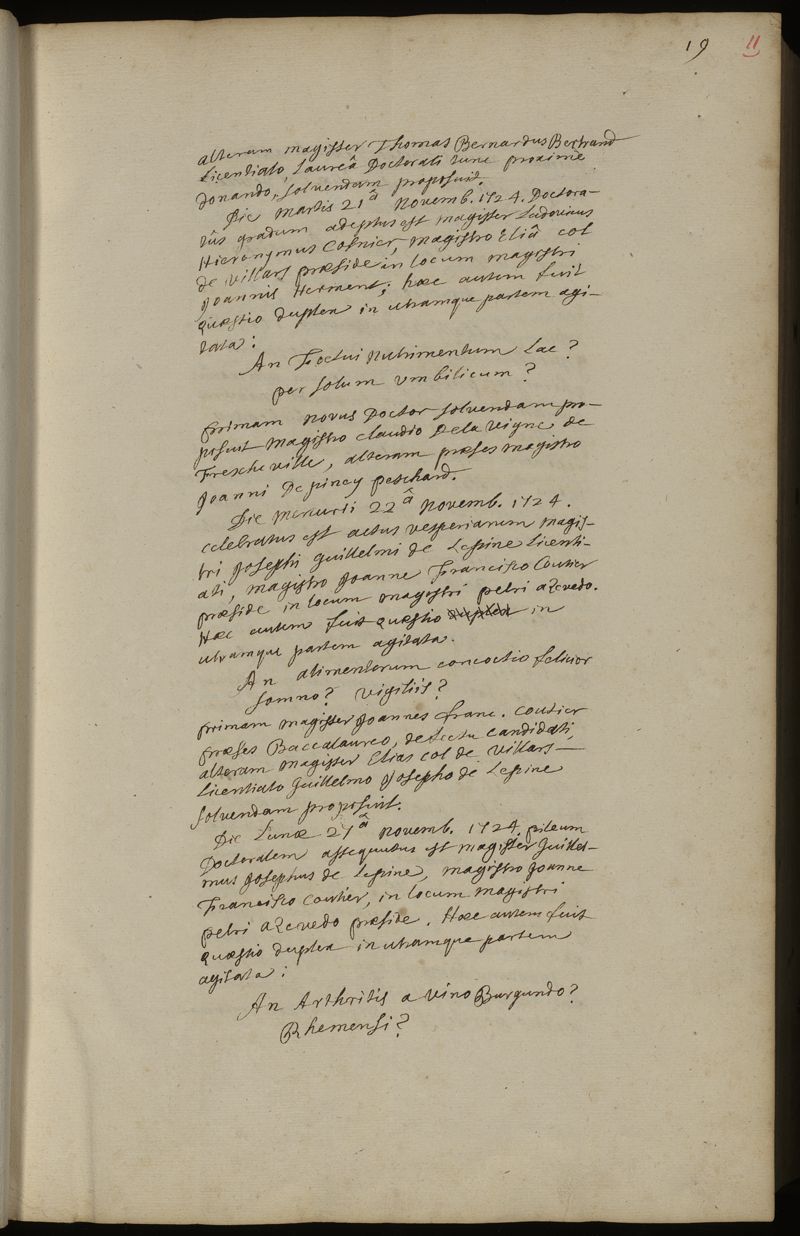 19 11
alteram magister Thomas Bernardus Bertrand
Licentiato, Laureâ Doctorali tunc proximè
donando, solvendam proposuit.
Die Martis 21â Novemb. 1724. Doctora-
tûs gradum adeptus est magister Ludovicus
Hieronymus Cosnier, magistro Eliâ Col
de Villars præside in locum magistri
Joannis Herment; hæc autem fuit
quæstio duplex in utramque partem agi-
tata:
An Foetui Nutrimentum Lac?
per solum umbilicum?
primam novus Doctor solvendam pro-
posuit Magistro claudio De la Vigne de
Frescheville, alteram præses magistro
Joanni De piney peschard.
Die Mercurii 22â Novemb. 1724.
celebratus est actus vesperiarum magis-
tri Josephi guillelmi de Lepine Licenti-
ati, magistro Joanne Francisco Coutier
præside in locum magistri petri azevedo.
Hæc autem fuit quæstio duplex in
utramque partem agitata.
An alimentorum concoctio felicior
somno? vigiliis?
primam magister Joannes franc. Coutier
præses Baccalaureo, defectu candidati,
alteram magister Elias col de villars
Licentiato guillelmo Josepho de Lepine
solvendam proposuit.
Die Lunæ 27â Novemb. 1724. pileum
Doctoralem assequutus est magister guillel-
mus Josephus de Lepine, magistro Joanne
Francisco Coutier, in locum magistri
petri azevedo præside. Hæc autem fuit
quæstio duplex in utramque partem
agitata:
An Arthritis a vino Burgundo?
Rhemensi?